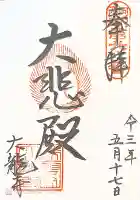 奉拝
令三年
五月十七日
大悲殿
大龍寺